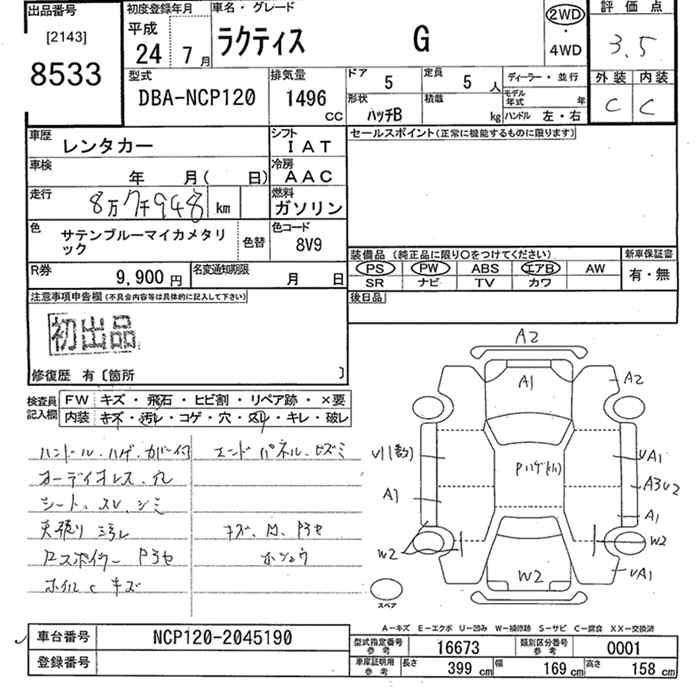 出品番号
[2143]
8533
初度登録年月
平成
24年 7月
車名・グレード
ラクティス G
2WD
・
4WD
評価点
3.5
外装 内装
C C
型式
DBA-NCP120
排気量
1496 CC
ドア 5
定員 5 人
形状 ハッチB
積載 kg
ディーラー・並行
モデル年式 年
ハンドル 左・右
車歴 レンタカー
シフト IAT
車検 年 月( 日)
冷房 AAC
走行 8万7千948 km
燃料 ガソリン
色 サテンブルーマイカメタリック
色替
色コード 8V9
R券 9,900円
名変通知期限 月 日
セールスポイント(正常に機能するものに限ります)
装備品 (純正品に限り○をつけてください)
新車保証書
PS PW ABS エアB AW
有・無
SR ナビ TV カワ
後日品
注意事項申告欄(不具合内容等は具体的に記入して下さい)
初出品
修復歴 有〔箇所 〕
検査員記入欄
FW キズ・飛石・ヒビ割・リペア跡・×要
内装 キズ・汚レ・コゲ・穴・スレ・キレ・破レ
ハンドル、ハゲ、カバー付
エンドパネル、ヒズミ
オーディオレス、穴
シート、スレ、シミ
天張り ヨゴレ
キズ、凹、Pヌケ
ホシュウ
ホイル C キズ
A2
A1
A2
UA1
A3U2
A1
W2
UA1
A1
W2
W2
スペア
A-キズ E-エクボ U-凹み W-補修跡 S-サビ C-腐食 XX-交換済
車台番号 NCP120-2045190
登録番号
型式指定番号 参考 16673
類別区分番号 参考 0001
車庫証明用 参考
長さ 399 cm
幅 169 cm
高さ 158 cm